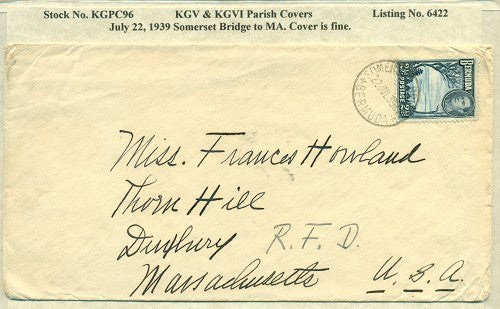 Stock No. KGPC96 KGV & KGVI Parish Covers Listing No. 6422
July 22, 1939 Somerset Bridge to MA. Cover is fine.
BERMUDA
POSTAGE
BERMUDA
Miss. Frances Howland
Thorn Hill
Duxbury R.F.D.
Massachusetts U.S.A.